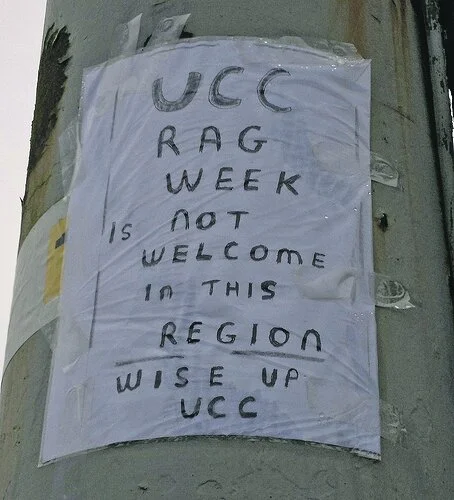 UCC
RAG
WEEK
IS NOT
WELCOME
In THIS
REGIOn
WISE UP
UCC